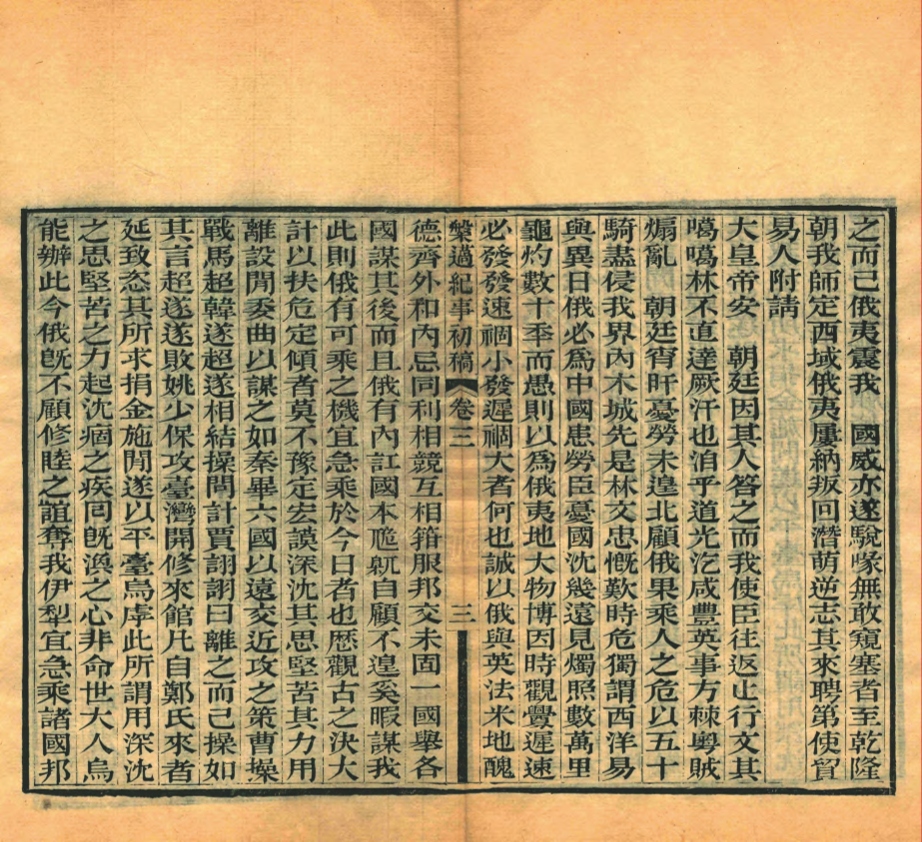 之而已俄夷震我　國威亦遂駾喙無敢窺塞者至乾隆
朝我師定西域俄夷屢納叛回潛萌逆志其來聘第使貿
易人附請
大皇帝安　朝廷因其人答之而我使臣往返止行文其
噶噶林不直達厥汗也洎乎道光汔咸豐英事方棘粵賊
煽亂　朝廷宵旰憂勞未遑北顧俄果乘人之危以五十
騎盡侵我界內木城先是林文忠慨歎時危獨謂西洋易
與異日俄必爲中國患勞臣憂國沈幾遠見燭照數萬里
龜灼數十秊而愚則以爲俄夷地大物博因時觀釁遲速
必發發速禍小發遲禍大者何也誠以俄與英法米地醜
槃薖紀事初稿　卷三　三
德齊外和內忌同利相競互相箝服邦交未固一國舉各
國謀其後而且俄有內訌國本脆臲自顧不遑奚暇謀我
此則俄有可乘之機宜急乘於今日者也歷觀古之決大
計以扶危定傾者莫不豫定宏謨深沈其思堅苦其力用
離設閒委曲以謀之如秦畢六國以遠交近攻之策曹操
戰馬超韓遂超遂相結操閒計賈詡詡曰離之而已操如
其言超遂遂敗姚少保攻臺灣開修來館凡自鄭氏來者
延致恣其所求捐金施閒遂以平臺烏虖此所謂用深沈
之思堅苦之力起沈痼之疾囘旣渙之心非命世大人烏
能辦此今俄旣不顧修睦之誼奪我伊犁宜急乘諸國邦